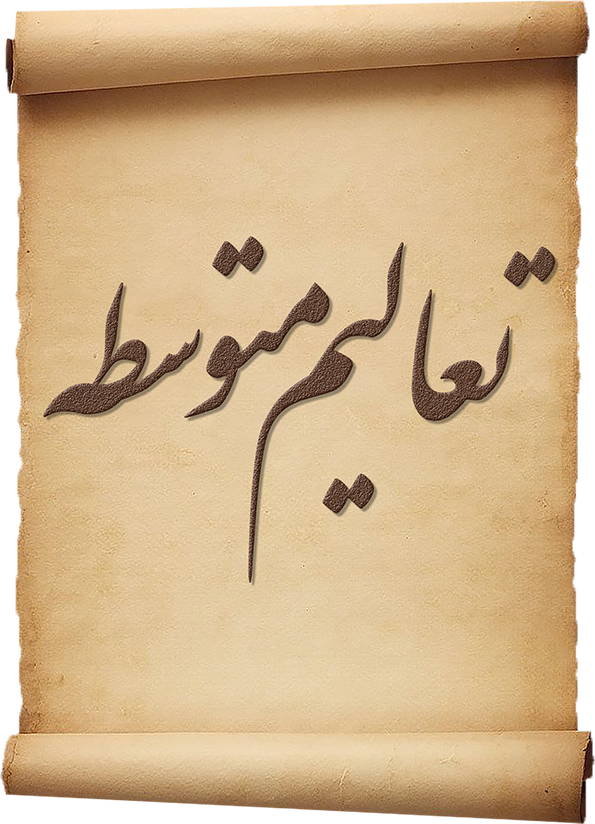 تعالیم متوسطه